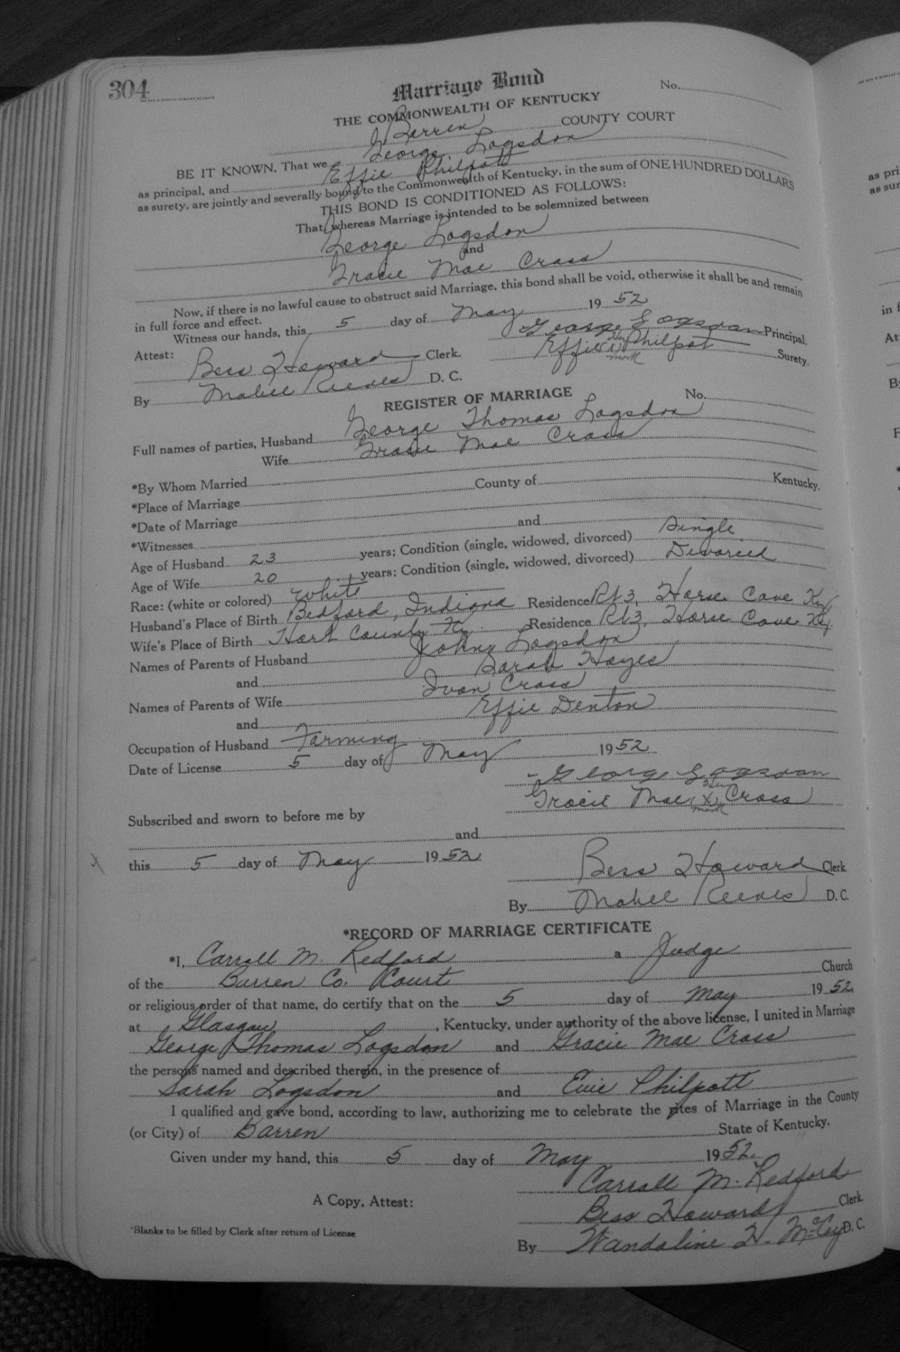 304
Marriage Bond
No.
THE COMMONWEALTH OF KENTUCKY
Barren COUNTY COURT
BE IT KNOWN, That we George Logsdon
as principal, and Effie Philpott
as surety, are jointly and severally bound to the Commonwealth of Kentucky, in the sum of ONE HUNDRED DOLLARS
THIS BOND IS CONDITIONED AS FOLLOWS:
That, whereas Marriage is intended to be solemnized between
George Logsdon
and
Gracie Mae Cross
Now, if there is no lawful cause to obstruct said Marriage, this bond shall be void, otherwise it shall be and remain
in full force and effect.
Witness our hands, this 5 day of May 1952
George Logsdon Principal.
Attest: Effie her x mark Philpot Surety.
Bess Howard Clerk.
By Mabel Reeves D. C.
REGISTER OF MARRIAGE
No.
Full names of parties, Husband George Thomas Logsdon
Wife Gracie Mae Cross
*By Whom Married
*Place of Marriage County of Kentucky.
*Date of Marriage
*Witnesses and
Age of Husband 23 years; Condition (single, widowed, divorced) Single
Age of Wife 20 years; Condition (single, widowed, divorced) Divorced
Race: (white or colored) White
Husband's Place of Birth Bedford, Indiana Residence Rt 3, Horse Cave Ky
Wife's Place of Birth Hart County Ky. Residence Rt 3, Horse Cave Ky.
Names of Parents of Husband Johny Logsdon
and Sarah Hayes
Names of Parents of Wife Ivan Cross
and Effie Denton
Occupation of Husband Farming
Date of License 5 day of May 1952
George Logsdon
Gracie Mae her x mark Cross
Subscribed and sworn to before me by
and
x this 5 day of May 1952
Bess Howard Clerk
By Mabel Reeves D. C.
*RECORD OF MARRIAGE CERTIFICATE
*I, Carroll M. Redford a Judge
of the Barren Co. Court Church
or religious order of that name, do certify that on the 5 day of May 1952
at Glasgow, Kentucky, under authority of the above license, I united in Marriage
George Thomas Logsdon and Gracie Mae Cross
the persons named and described therein, in the presence of
Sarah Logsdon and Evie Philpott
I qualified and gave bond, according to law, authorizing me to celebrate the rites of Marriage in the County
(or City) of Barren State of Kentucky.
Given under my hand, this 5 day of May 1952
Carroll M. Redford
A Copy, Attest: Bess Howard Clerk
*Blanks to be filled by Clerk after return of License
By Wandaline H. McCoy D. C.